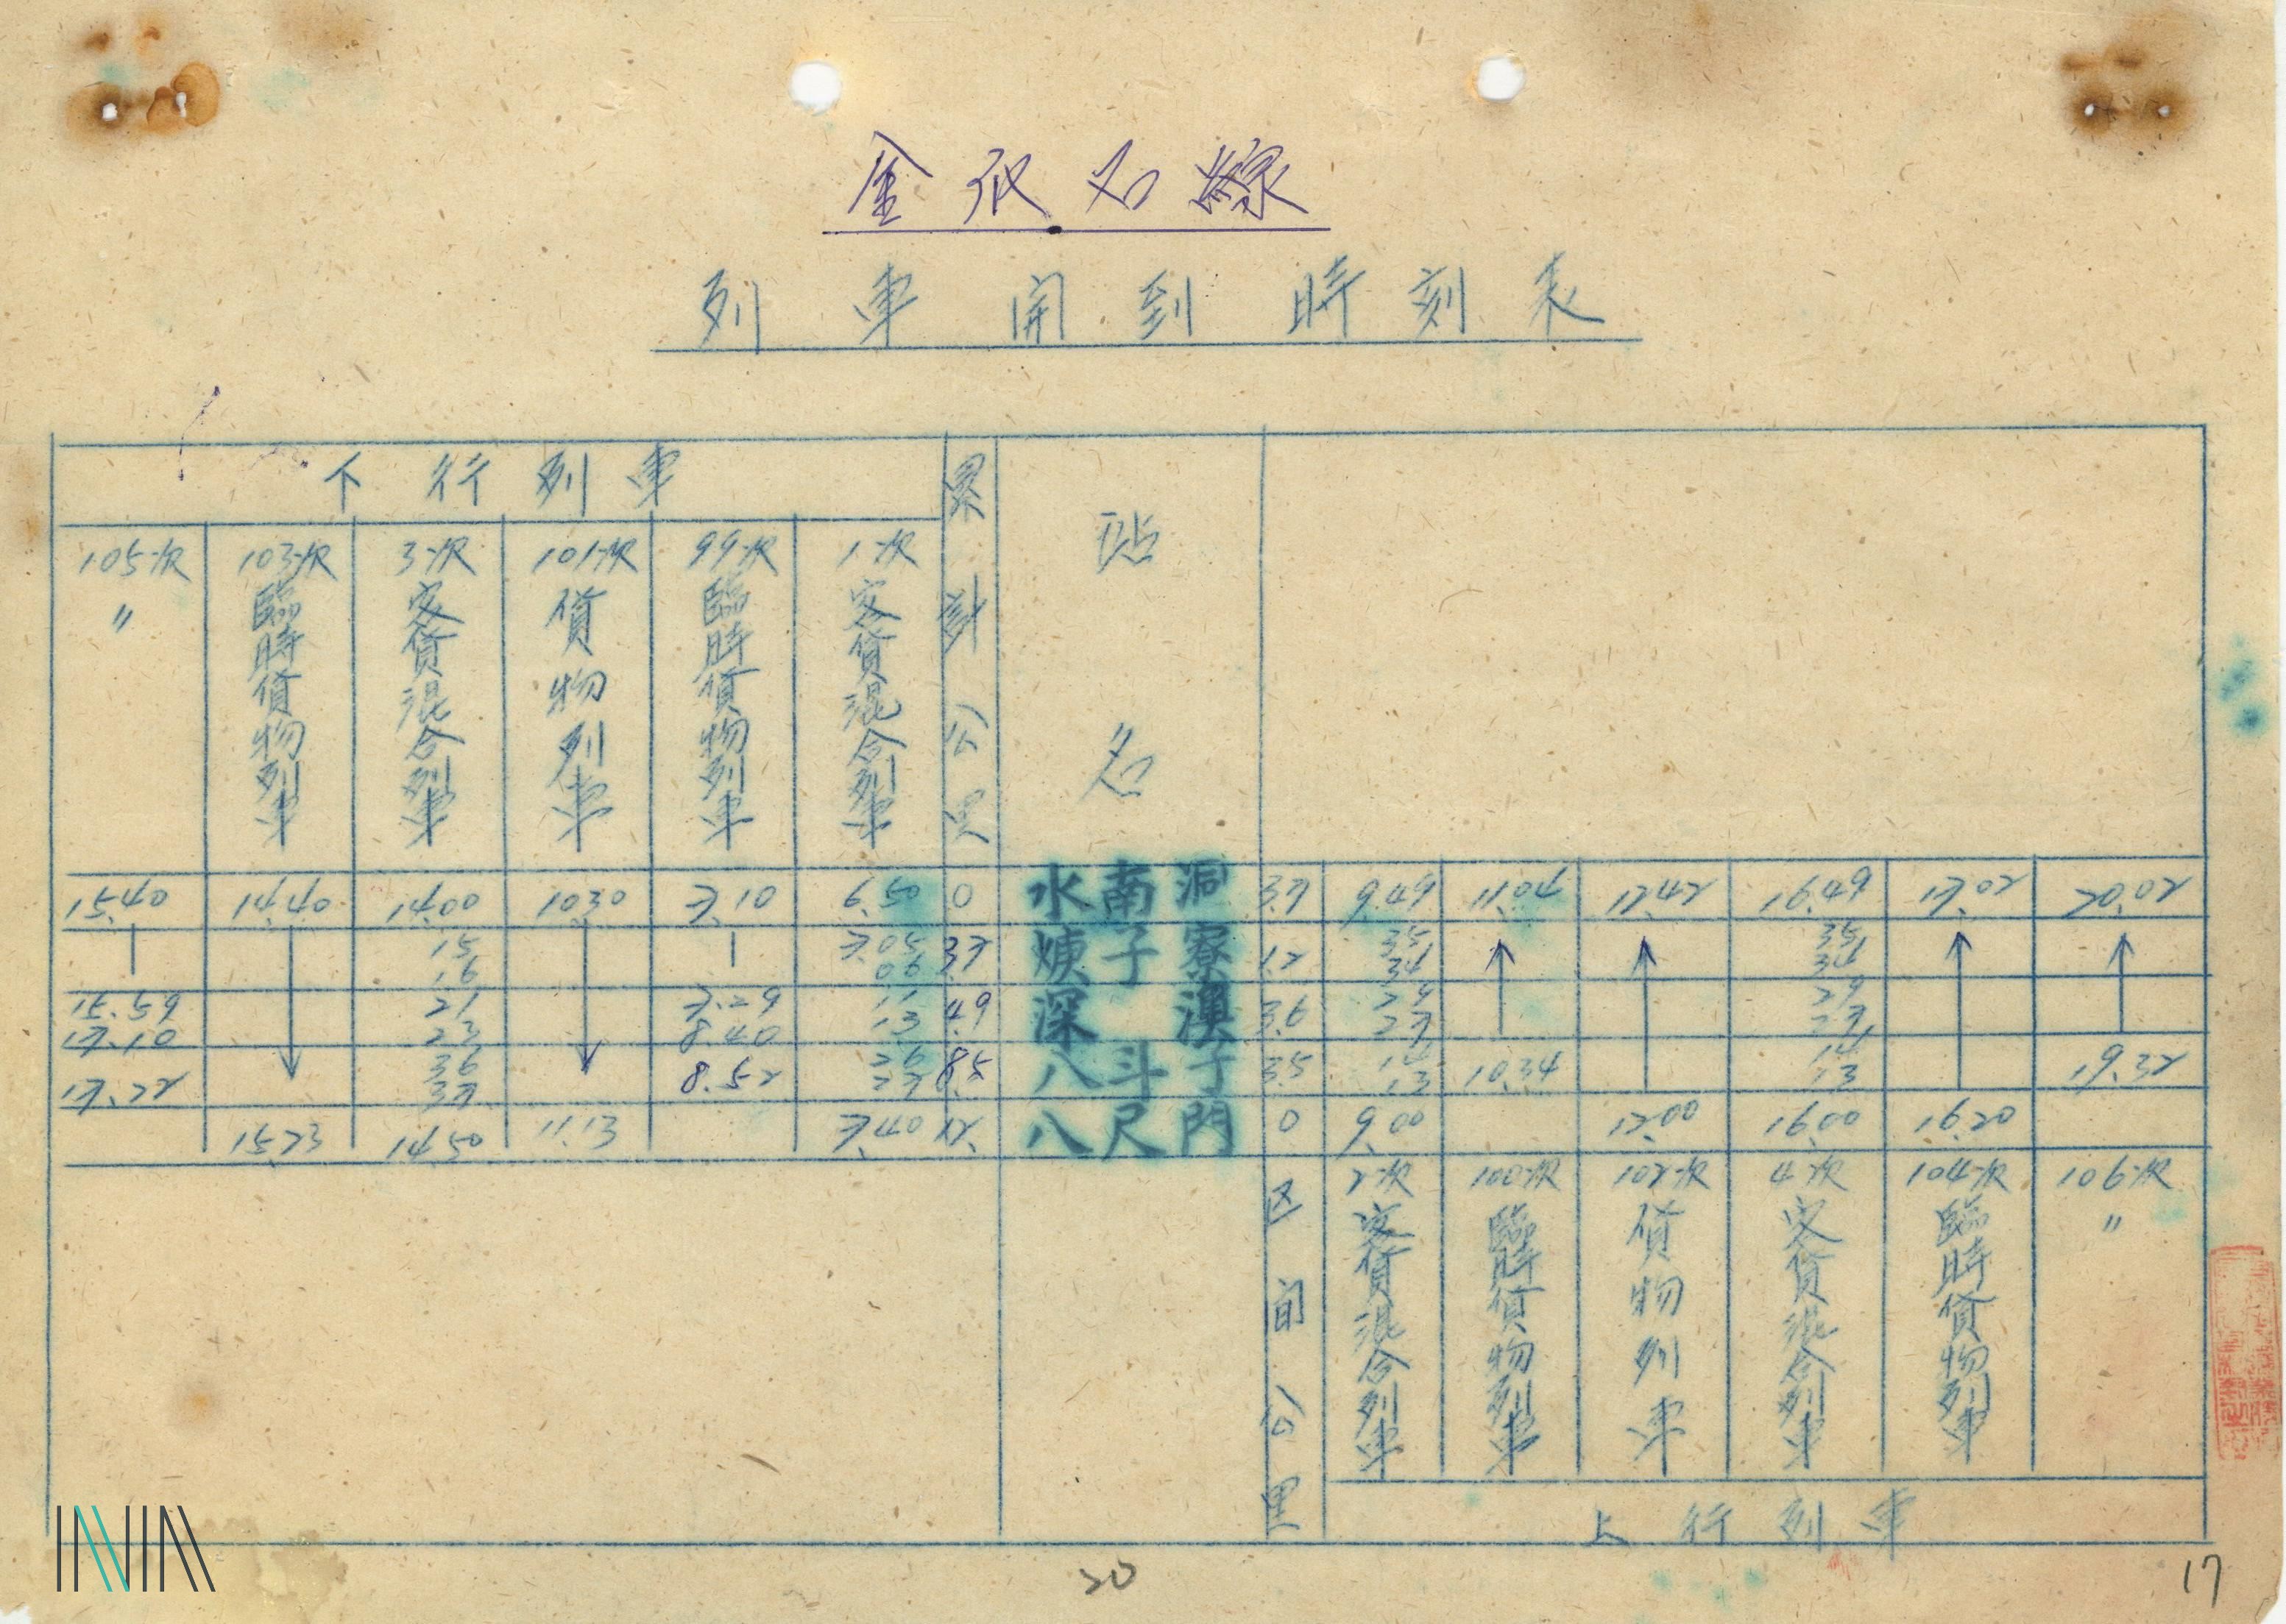 金瓜石線
列車開到時刻表
下行列車
累計公里
站名
105次 103次 3次 101次 99次 1次
〃 臨時貨物列車 客貨混合列車 貨物列車 臨時貨物列車 客貨混合列車
15.40 14.40 14.00 10.30 7.10 6.50 0 水南洞 3.7 9.49 11.04 12.42 16.49 17.02 20.02
15 7.05 35 35
16 06 3.7 焿子寮 1.2 34 34
15.59 21 7.29 11 29 29
17.10 23 8.40 13 4.9 深澳 3.6 27 27
36 26 14 14
17.22 37 8.52 27 8.5 八斗子 3.5 13 10.34 13 19.32
15.23 14.50 11.13 7.40 12. 八尺門 0 9.00 12.00 16.00 16.20
区间公里
2次 100次 102次 4次 104次 106次
客貨混合列車 臨時貨物列車 貨物列車 客貨混合列車 臨時貨物列車 〃
上行列車
20
17